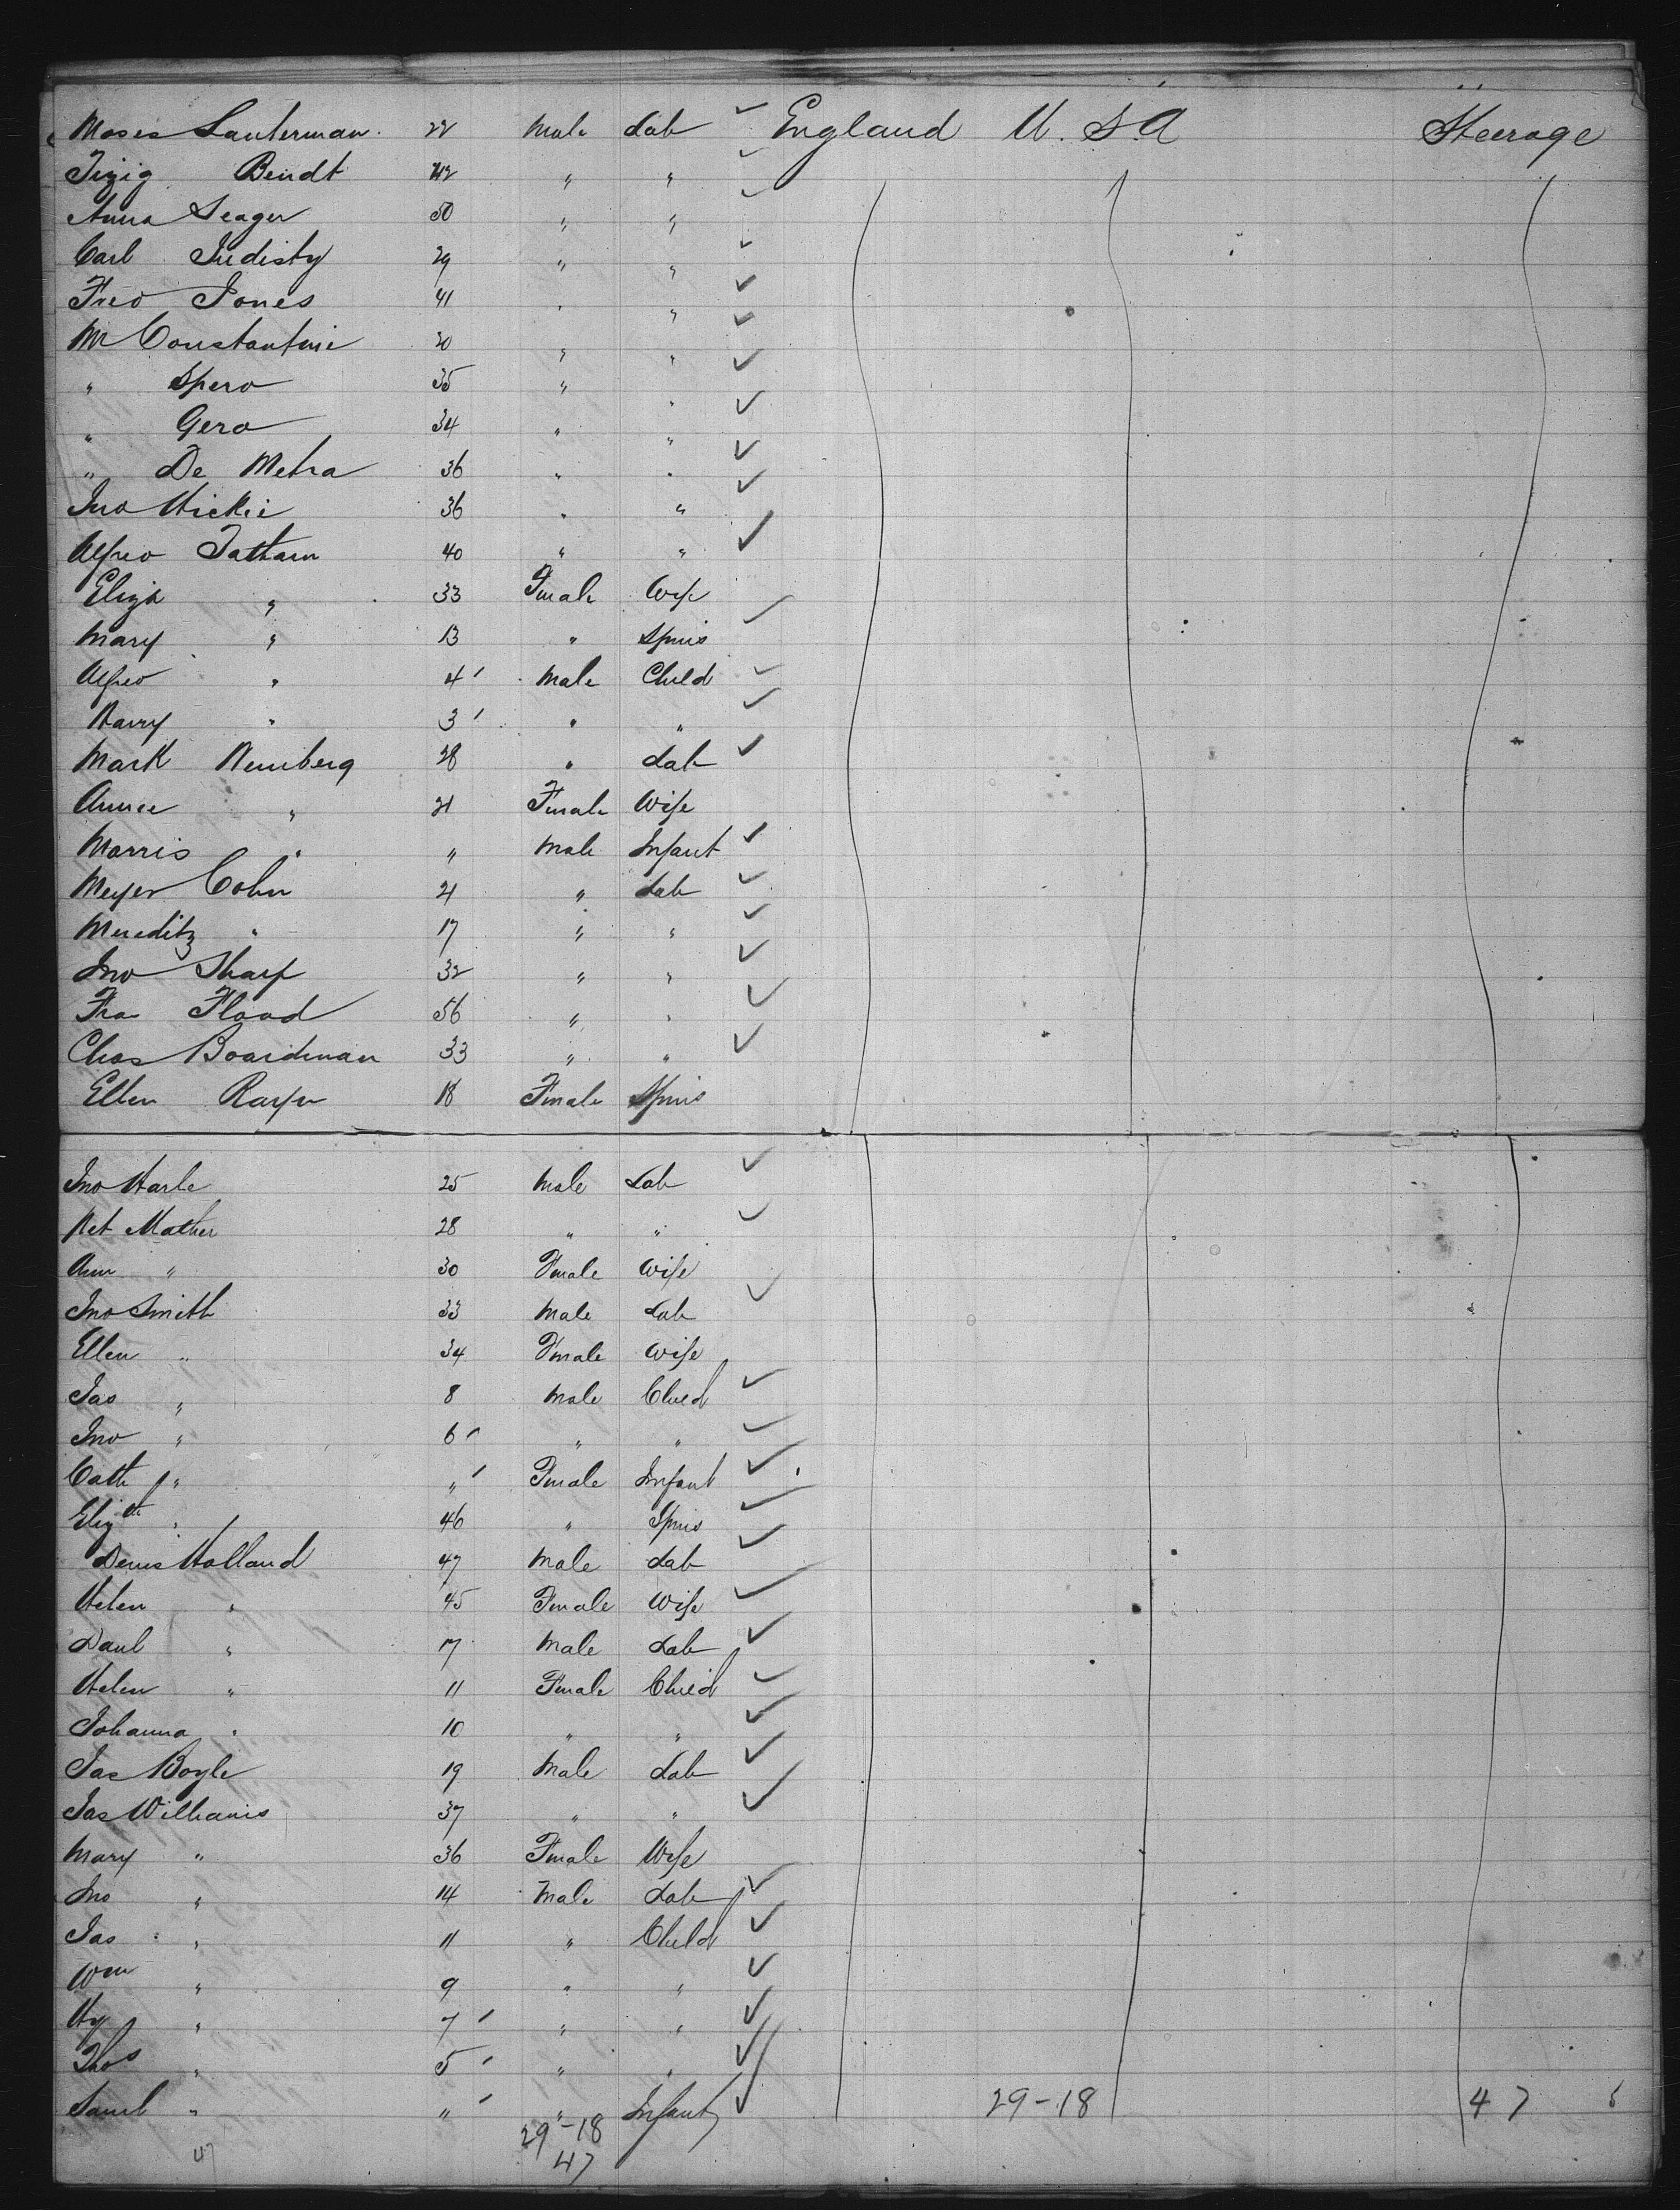 Moses Lauterman 22 Male Lab England U.S.A Steerage
Bendt 42 " "
Anna Seager 50 " "
Carl 29 " "
Fred Jones 41 " "
Mr Constantine 30 " "
" Spero 35 " "
" Gero 34 " "
" De Metra 36 " "
Jno Hickie 36 " "
Alfred Tattam 40 " "
Eliza " 33 Female Wife
Mary " 13 " Spins
Alfred " 4 Male Child
Harry " 3 " "
Mark 28 " Lab
Annee " 21 Female Wife
Morris " " Male Infant
Meyer Cohn 21 " Lab
Mereditz " 17 " "
Jno Sharp 32 " "
Fra Flood 56 " "
Chas Boardman 33 " "
Ellen 18 Female Spins
Jno Harle 25 Male Lab
Ret Mather 28 " "
Ann " 30 Female Wife
Jno Smith 33 Male Lab
Ellen " 34 Female Wife
Jas " 8 Male Child
Jno " 6 " "
Cath " " Female Infant
Elizth " 46 " Spins
Denis Holland 47 Male Lab
Helen " 45 Female Wife
Danl " 17 Male Lab
Helen " 11 Female Child
Johanna " 10 " "
Jas Boyle 19 Male Lab
Jas Williams 37 " "
Mary " 36 Female Wife
Jno " 14 Male Lab
Jas " 11 " Child
Wm " 9 " "
Hy " 7 " "
Thos " 5 " "
Saml " " " Infant 29-18 47
29-18
47 47